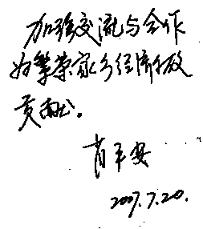 加强交流与合作
为繁荣家乡经济做
贡献。
肖平安
2007.7.20.